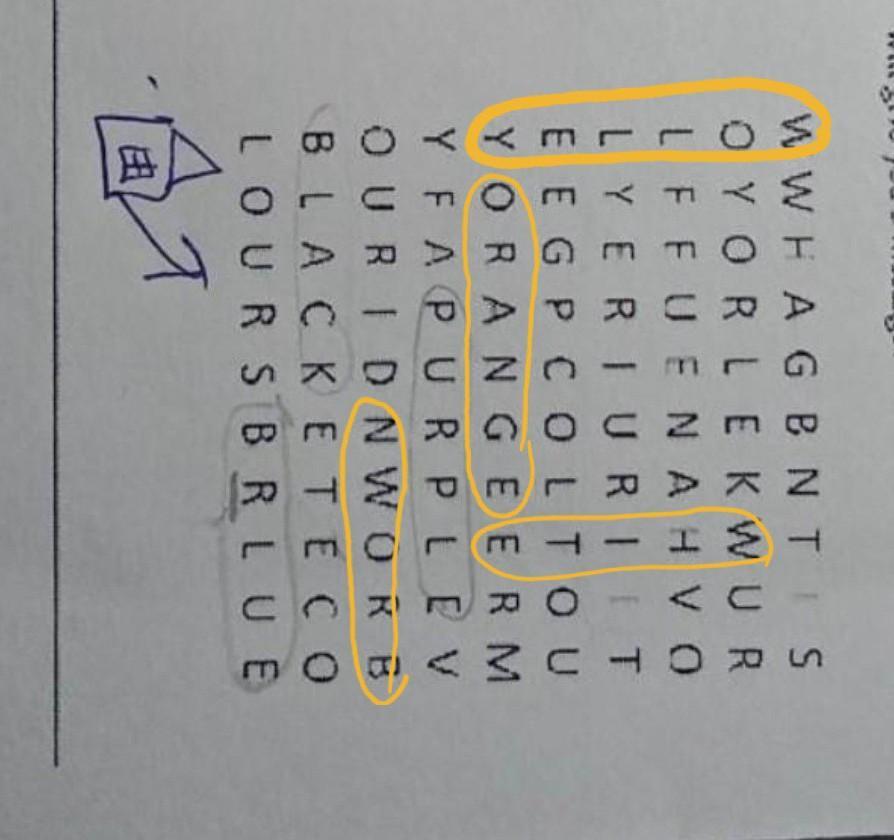 W W H A G B N T I S
O Y O R L E K W U R
L F F U E N A H V O
L Y E R I U R I I T
E E G P C O L T O U
Y O R A N G E E R M
Y F A P U R P L E V
O U R I D N W O R B
B L A C K E T E C O
L O U R S B R L U E